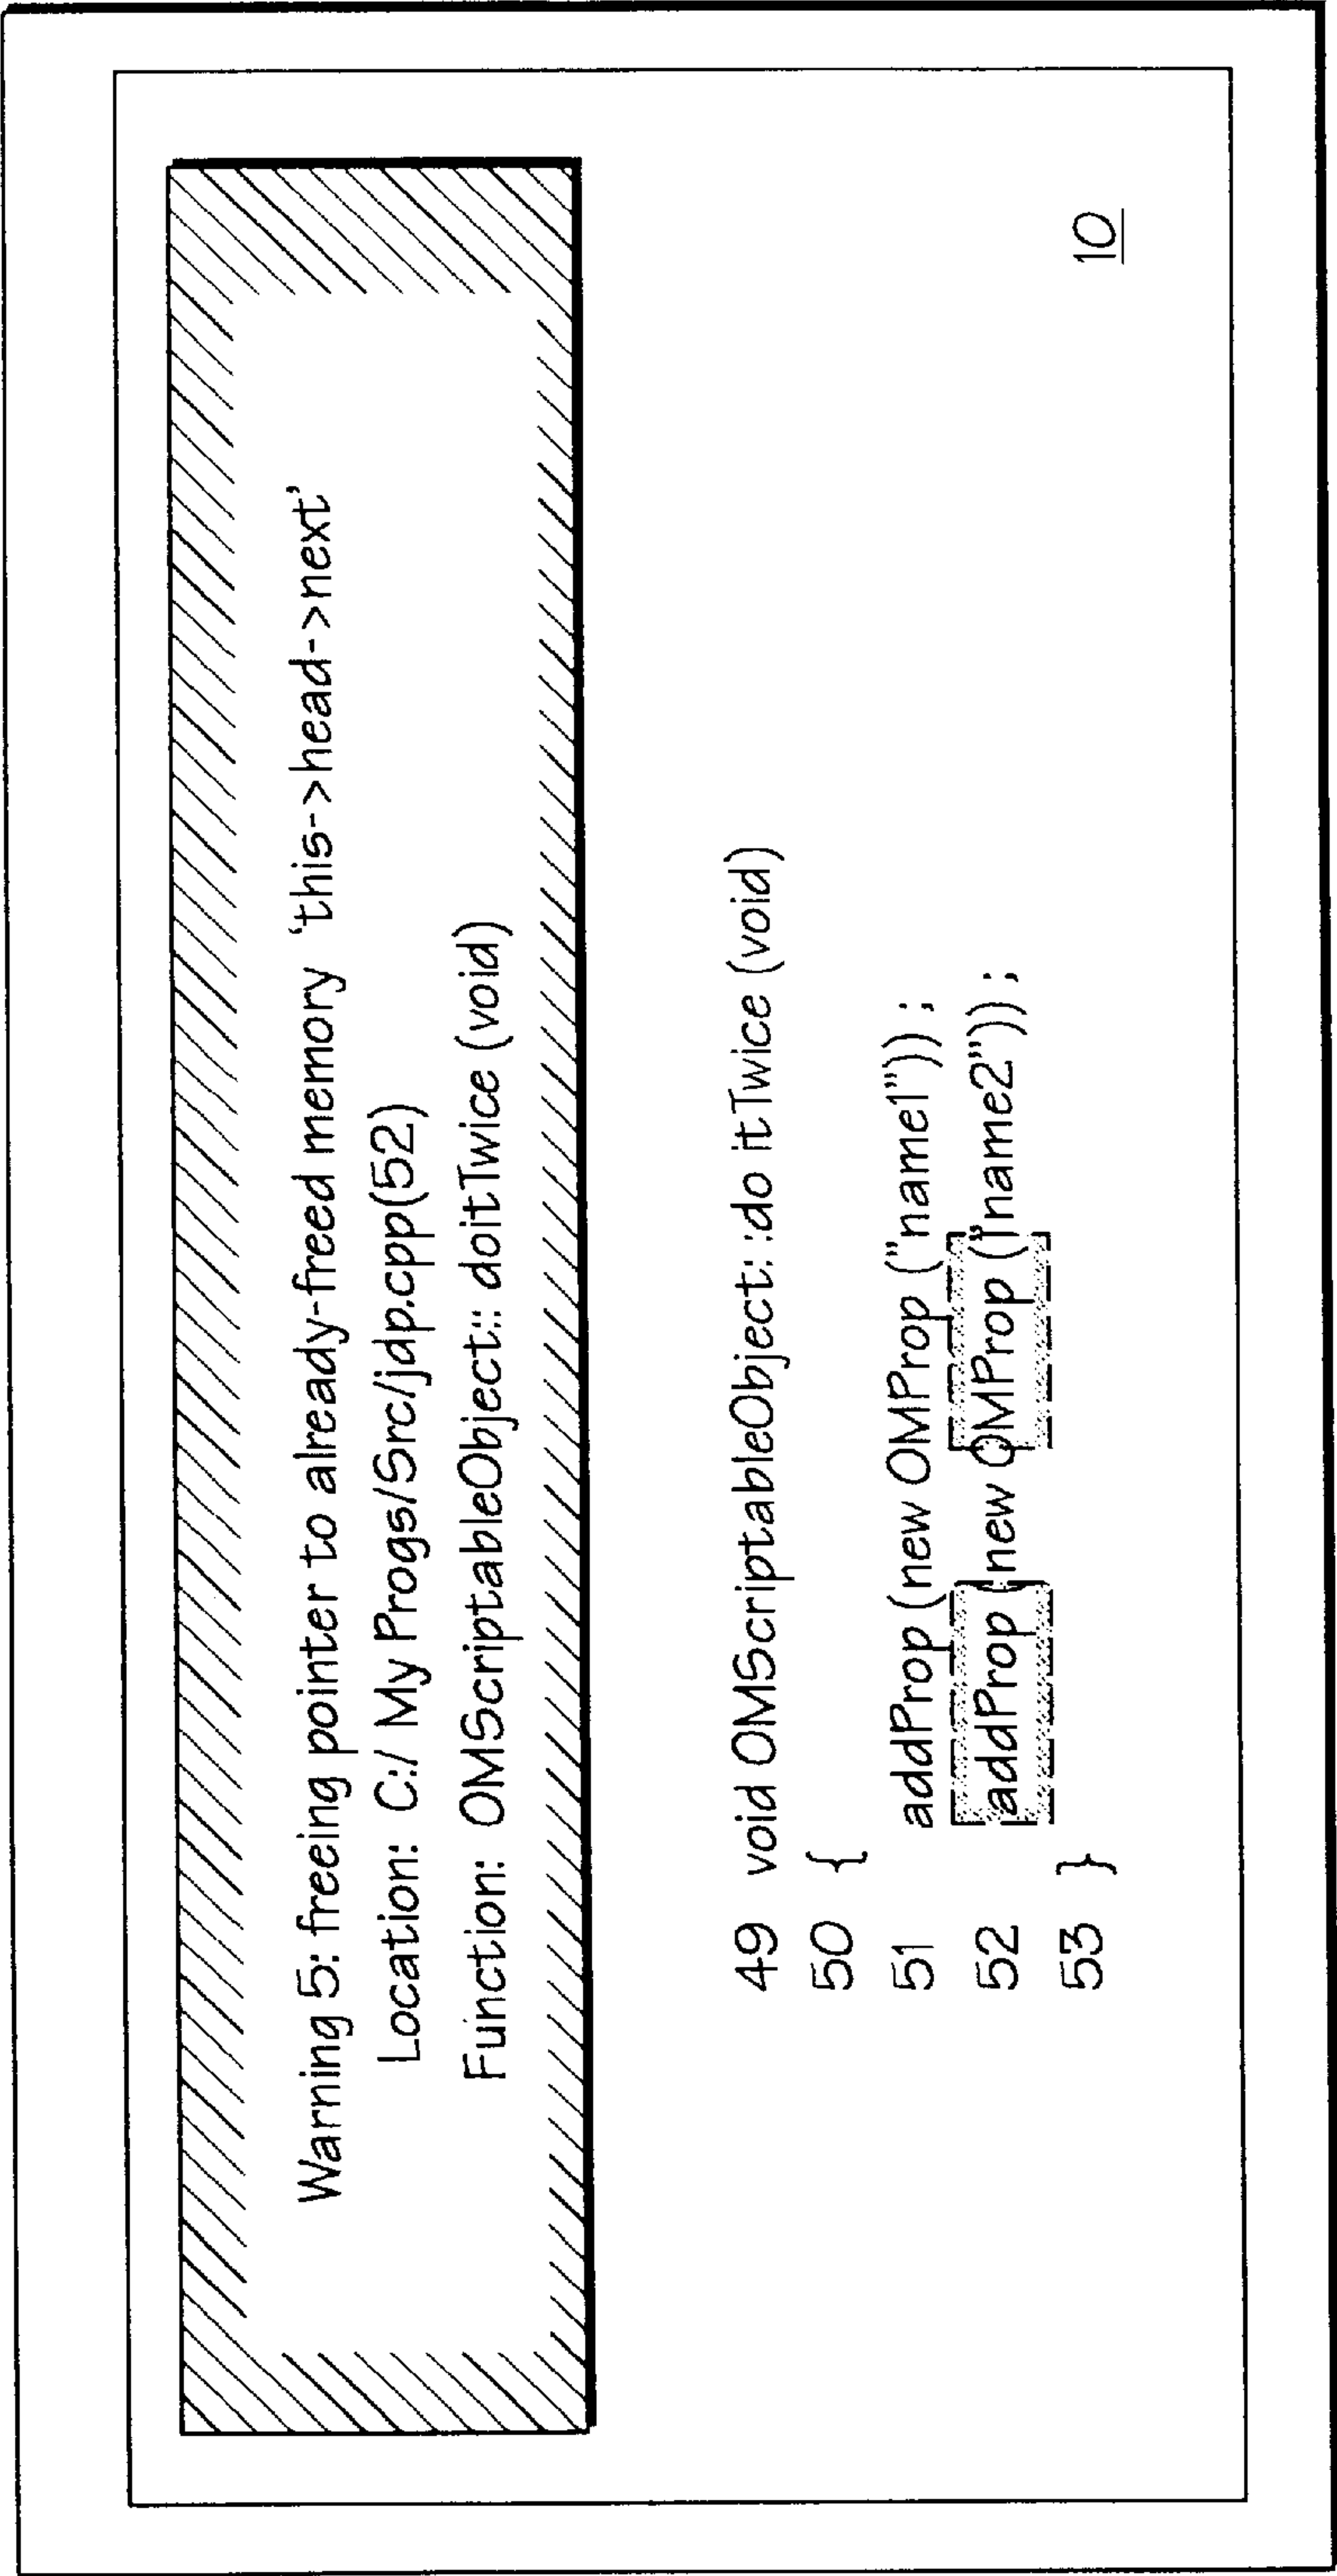 Warning 5: freeing pointer to already-freed memory 'this->head->next'
Location: C:/ My Progs/Src/jdp.cpp(52)
Function: OMScriptableObject:: doitTwice (void)
49 void OMScriptableObject: :do itTwice (void)
50 {
51 addProp (new OMProp ("name1")) ;
52 addProp (new OMProp ("name2")) ;
53 }
10